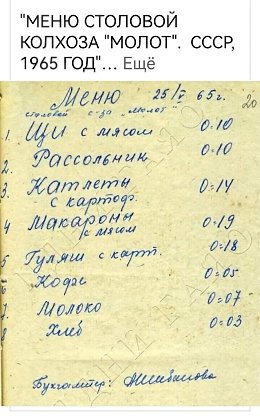 "МЕНЮ СТОЛОВОЙ
КОЛХОЗА "МОЛОТ". СССР,
1965 ГОД"... Ещё
Меню 25/V 65г. 20
столовой с-за "Молот"
1. Щи с мясом 0=10
2. Рассольник 0=10
3. Катлеты 0=14
с картоф.
4 Макароны 0=19
с мясом
5 Гуляш с карт. 0=18
6 Кофе 0=05
7. Молоко 0=07
8 Хлеб 0=03
Бухгалтер: